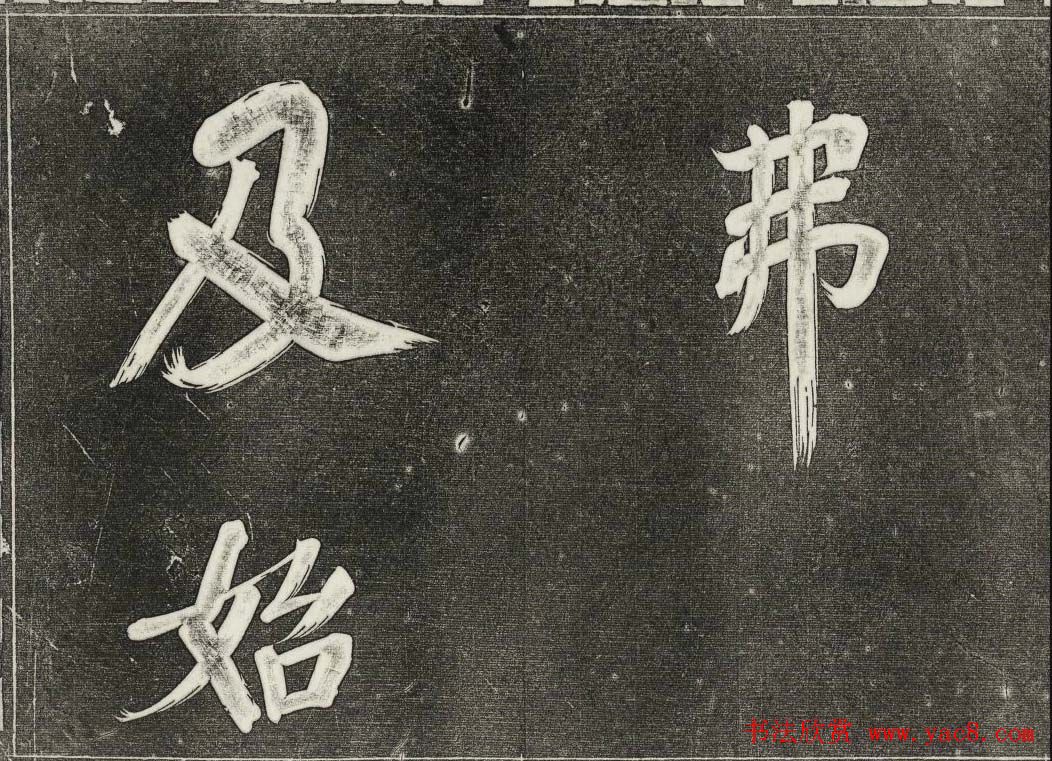 弗
及始
书法欣赏 www.yac8.com